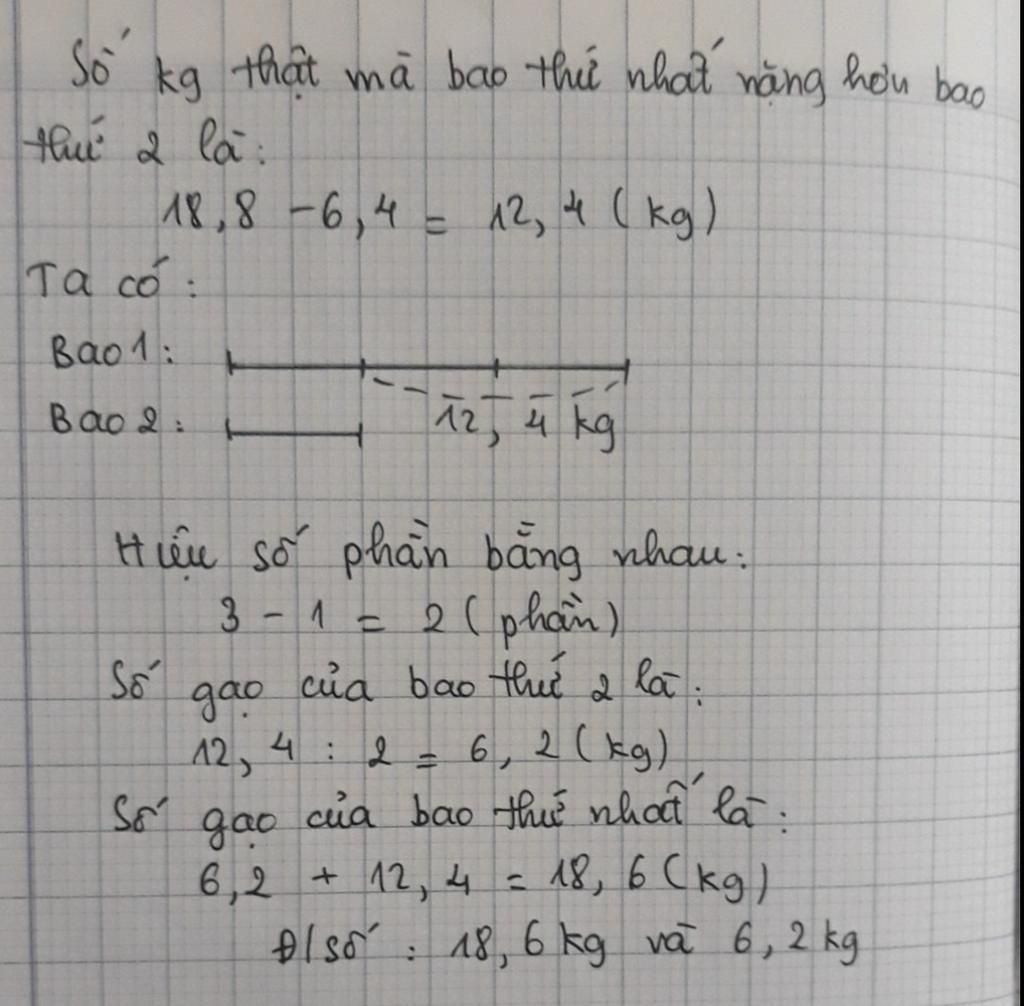 Số kg thật mà bao thứ nhất nặng hơn bao
thứ 2 là:
18,8 - 6,4 = 12,4 (kg)
Ta có:
Bao 1:
Bao 2: 12,4 kg
Hiệu số phần bằng nhau:
3 - 1 = 2 (phần)
Số gạo của bao thứ 2 là:
12,4 : 2 = 6,2 (kg)
Số gạo của bao thứ nhất là:
6,2 + 12,4 = 18,6 (kg)
Đ/số: 18,6 kg và 6,2 kg